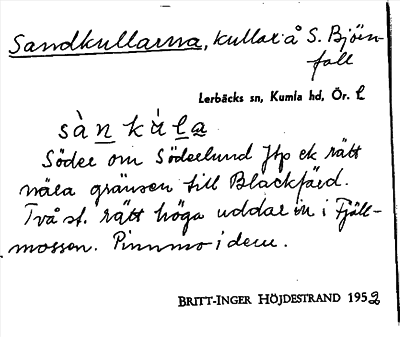 Sandkullarna, kullar å S. Björn-
fall
Lerbäcks sn, Kumla hd, Ör. l
sànkula
Söder om Söderlund Jtp ek rätt
nära gränsen till Blackfärd.
Två st. rätt höga uddar in i Fjäll-
mossen. Pinnmo i dem.
BRITT-INGER HÖJDESTRAND 1952